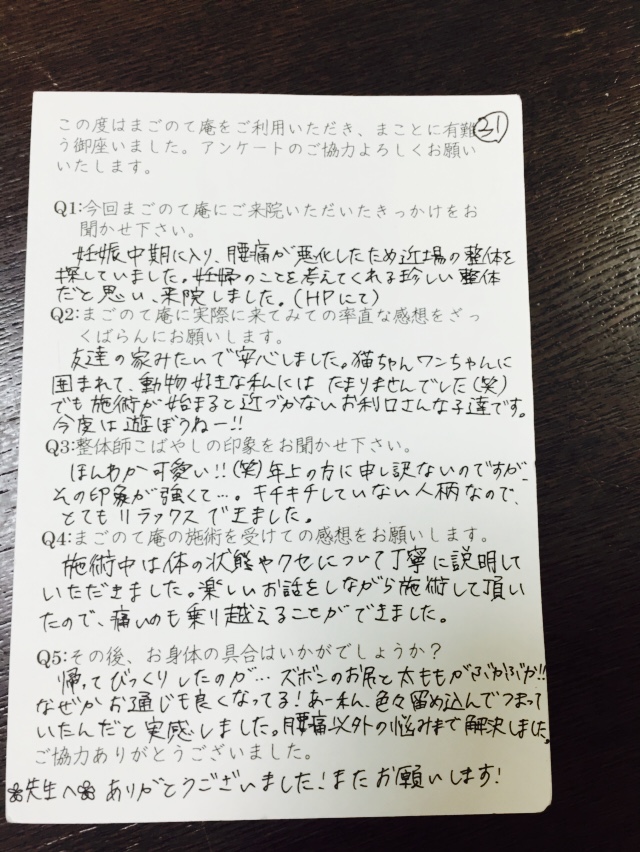 この度はまごのて庵をご利用いただき、まことに有難
31
う御座いました。アンケートのご協力よろしくお願い
いたします。
Q1:今回まごのて庵にご来院いただいたきっかけをお
聞かせ下さい。
妊娠中期に入り、腰痛が悪化したため近場の整体を
探していました。妊婦のことを考えてくれる珍しい整体
だと思い、来院しました。(HPにて)
Q2:まごのて庵に実際に来てみての率直な感想をざっ
くばらんにお願いします。
友達の家みたいで安心しました。猫ちゃんワンちゃんに
囲まれて、動物好きな私にはたまりませんでした(笑)
でも施術が始まると近づかないお利口さんな子達です。
今度は遊ぼうねー!!
Q3:整体師こばやしの印象をお聞かせ下さい。
ほんわか可愛い!!(笑)年上の方に申し訳ないのですが、
その印象が強くて…。キチキチしていない人柄なので、
とてもリラックスできました。
Q4:まごのて庵の施術を受けての感想をお願いします。
施術中は体の状態やクセについて丁寧に説明して
いただきました。楽しいお話をしながら施術して頂い
たので、痛いのも乗り越えることができました。
Q5:その後、お身体の具合はいかがでしょうか？
帰ってびっくりしたのが…ズボンのお尻と太ももがぶかぶか!!
なぜかお通じも良くなってる!あー私、色々留め込んでつまって
いたんだと実感しました。腰痛以外の悩みまで解決しました。
ご協力ありがとうございました。
先生へ ありがとうございました!またお願いします!